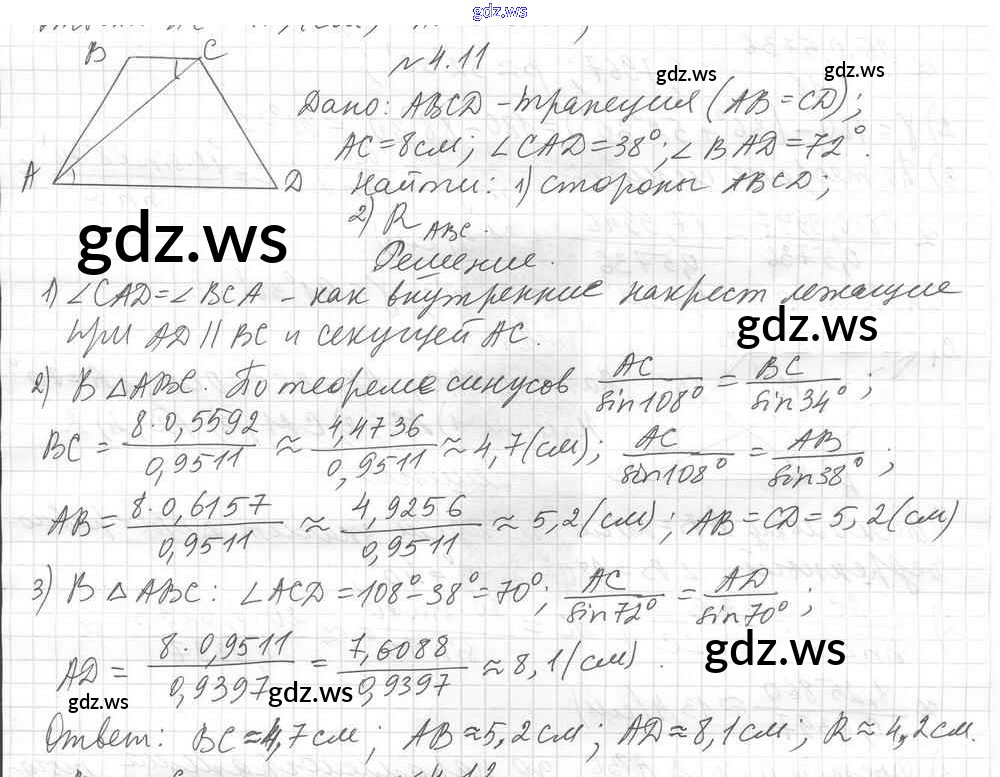 gdz.ws
N 4.11
B C
gdz.ws gdz.ws
Дано: ABCD - трапеция (AB = CD);
AC = 8см; ∠CAD = 38°; ∠BAD = 72°.
A D
Найти: 1) стороны ABCD;
2) R ABC.
gdz.ws
Решение.
1) ∠CAD = ∠BCA - как внутренние накрест лежащие
при AD || BC и секущей AC.
gdz.ws
2) В △ABC. По теореме синусов AC/sin108° = BC/sin34°;
BC = 8·0,5592/0,9511 ≈ 4,4736/0,9511 ≈ 4,7(см); AC/sin108° = AB/sin38°;
AB = 8·0,6157/0,9511 ≈ 4,9256/0,9511 ≈ 5,2(см); AB = CD = 5,2(см)
3) В △ABC: ∠ACD = 108° - 38° = 70°; AC/sin72° = AD/sin70°;
gdz.ws
AD = 8·0,9511/0,9397 = 7,6088/0,9397 ≈ 8,1(см).
gdz.ws gdz.ws
Ответ: BC ≈ 4,7см; AB ≈ 5,2см; AD ≈ 8,1см; R ≈ 4,2см.